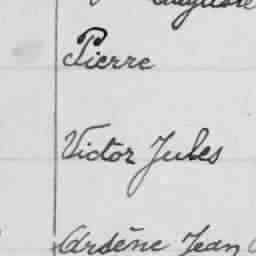 Pierre
Victor Jules
Arsène Jean